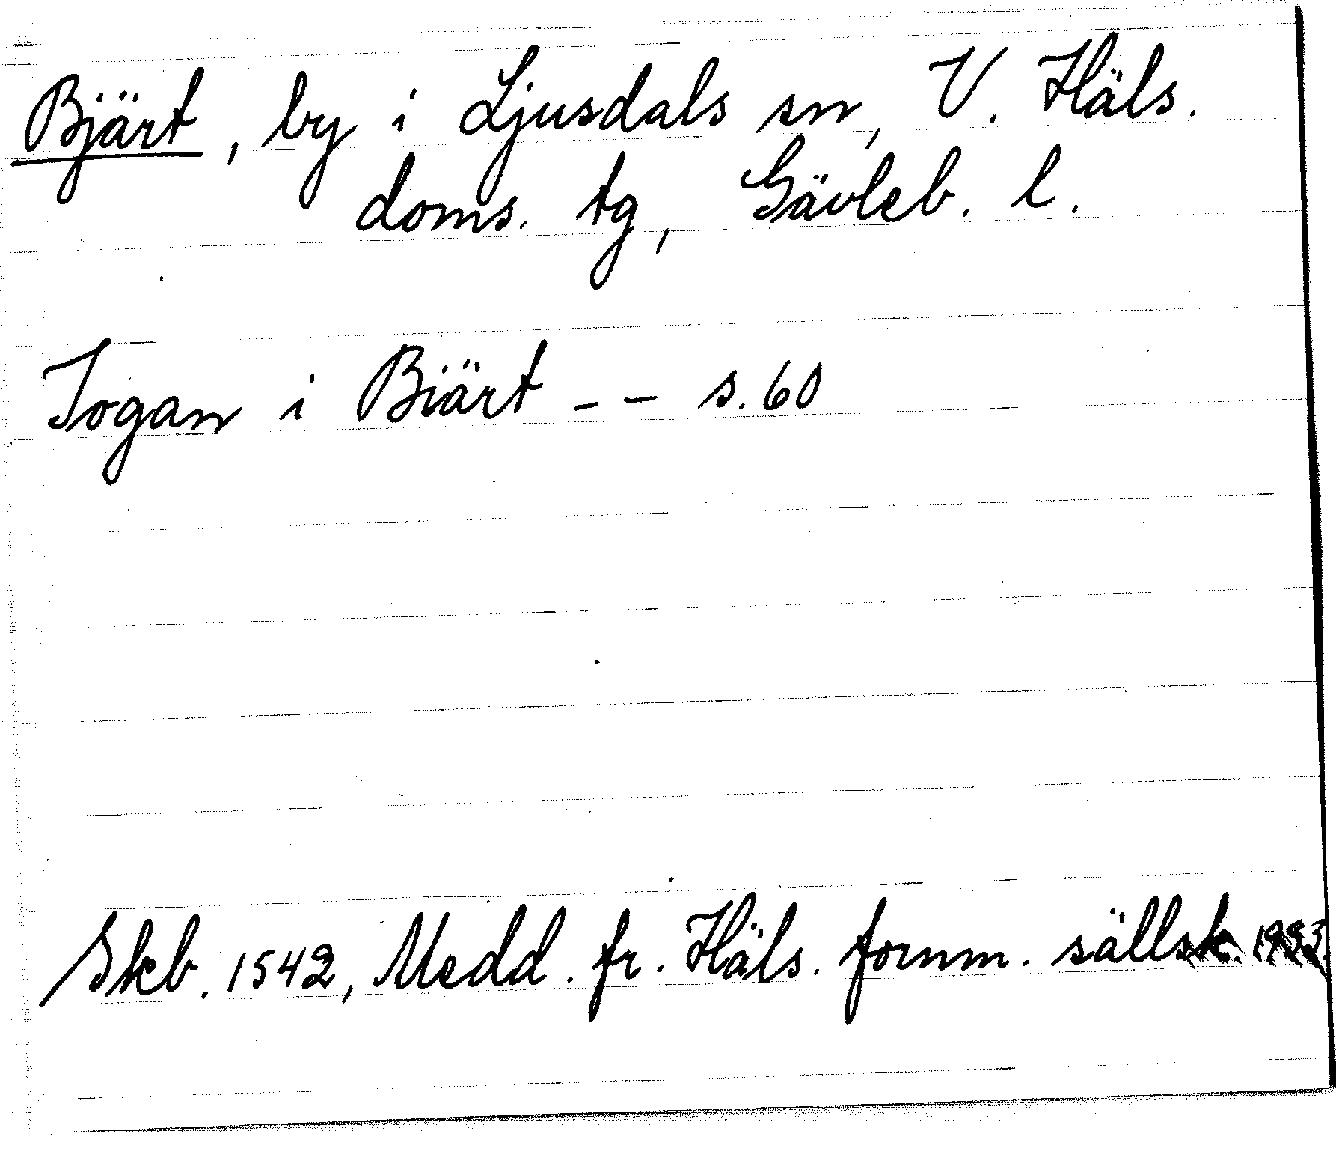 Bjärt, by i Ljusdals sn, V. Häls.
doms. tg, Gävleb. l.
Jogan i Biärt -- s. 60
Skb. 1542, Medd. fr. Häls. fornm. sällsk.